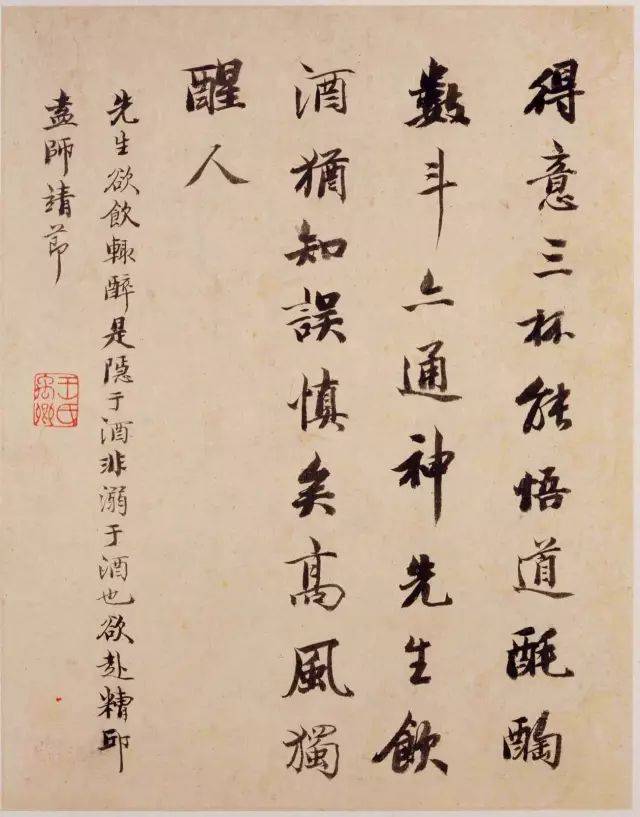 得意三杯能悟道酕醄
數斗亦通神先生飲
酒猶知誤慎矣高風獨
醒人
先生欲飲輒醉是隱于酒非溺于酒也欲赴糟邱
盍師靖節
王氏禹卿